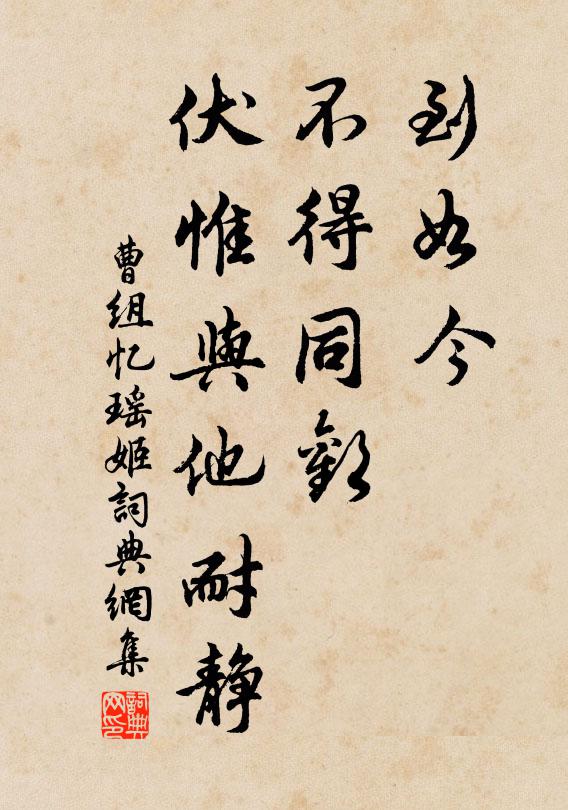 到如今
不得同歡
伏惟與他耐静
曹组忆瑶姬詞典網集
詞典网印